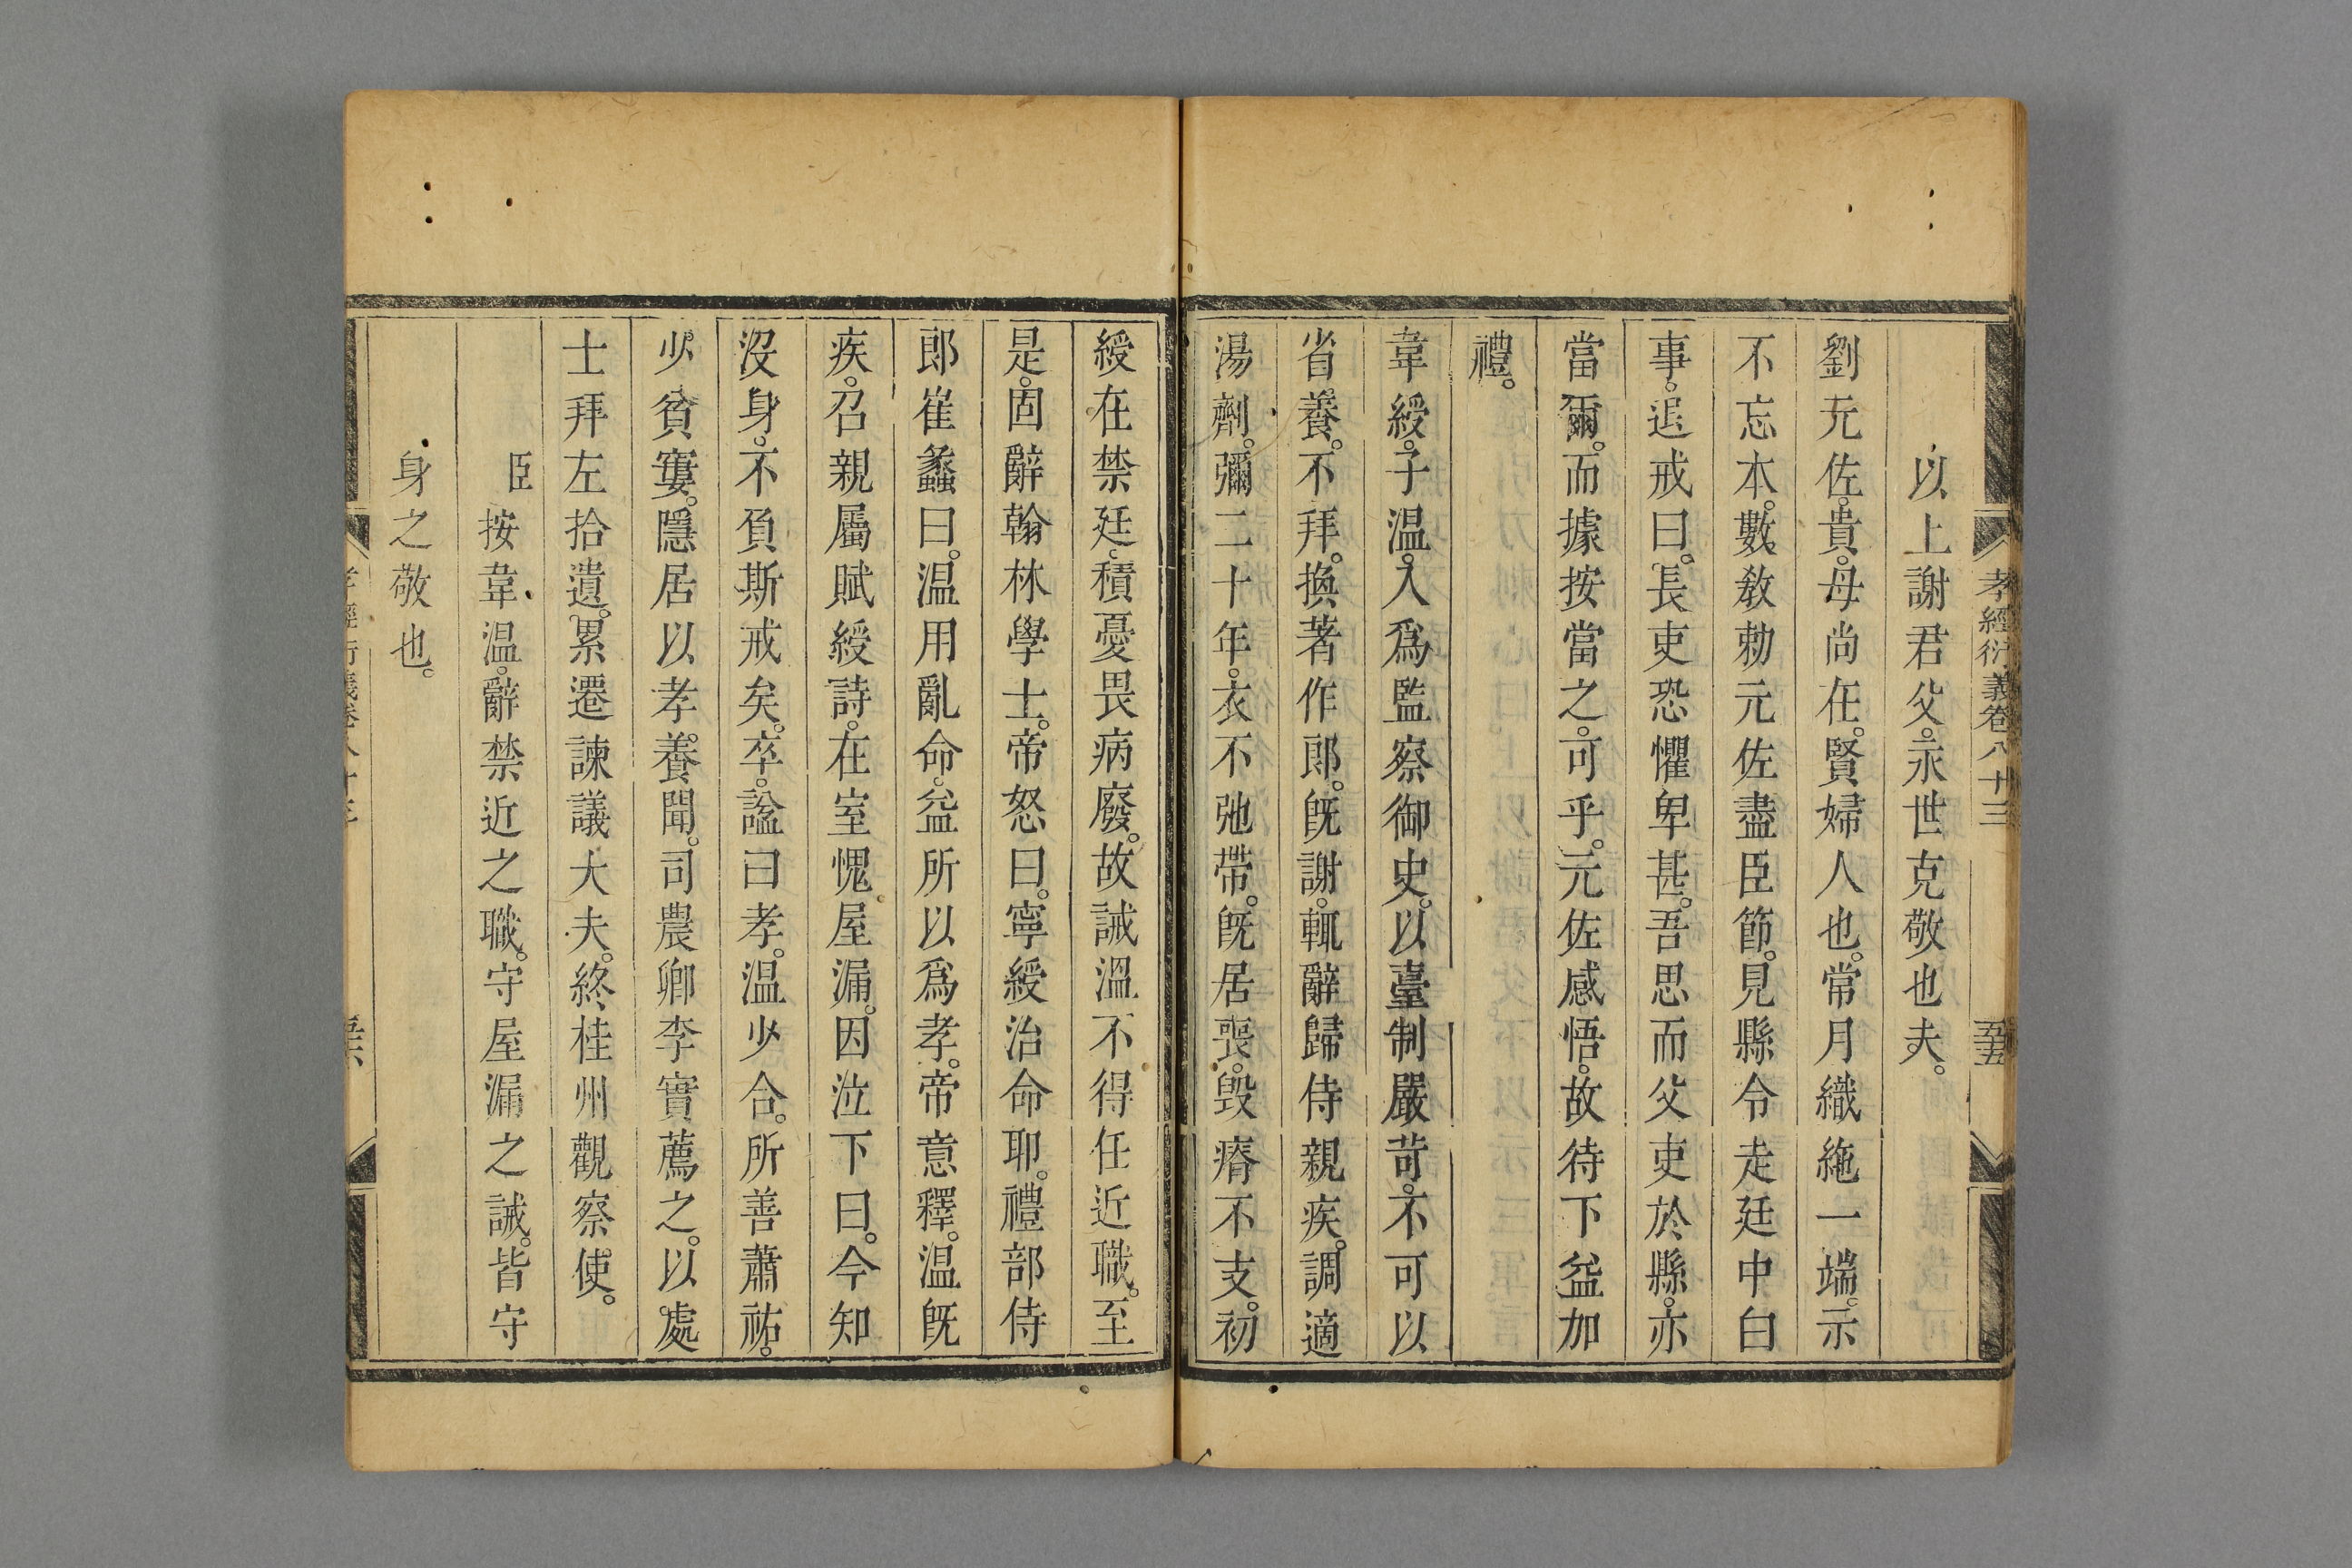 孝經衍義卷八十三
五十五
以上謝君父。永世克敬也夫。
劉元佐。貴。母尚在。賢婦人也。常月織絁一端。示
不忘本。數敎勅元佐盡臣節。見縣令走廷中白
事。退戒曰。長吏恐懼卑甚。吾思而父吏於縣。亦
當爾。而據按當之。可乎。元佐感悟。故待下益加
禮。
韋綬。子温。入爲監察御史。以臺制嚴苛。不可以
省養。不拜。換著作郎。旣謝。輒辭歸侍親疾。調適
湯劑。彌二十年。衣不弛帶。旣居喪。毁瘠不支。初
綬在禁廷。積憂畏病廢。故誡溫不得任近職。至
是。固辭翰林學士。帝怒曰。寧綬治命耶。禮部侍
郎崔蠡曰。温用亂命。益所以爲孝。帝意釋。温旣
疾。召親屬賦綬詩。在室愧屋漏。因泣下曰。今知
沒身。不負斯戒矣。卒。諡曰孝。温少合。所善蕭祐。
少貧窶。隱居以孝養聞。司農卿李實薦之。以處
士拜左拾遺。累遷諫議大夫。終桂州觀察使。
臣按韋温。辭禁近之職。守屋漏之誡。皆守
身之敬也。
孝經衍義卷八十三